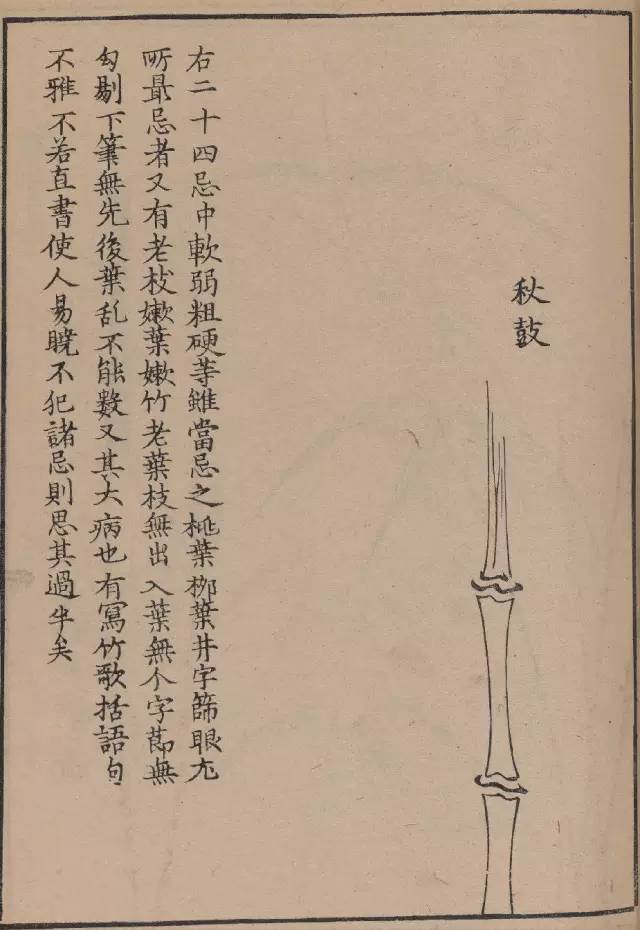 秋鼓
右二十四忌中軟弱粗硬等雖當忌之桃葉柳葉井字篩眼尤
所最忌者又有老枝嫰葉嫰竹老葉枝無出入葉無个字節無
勾剔下筆無先後葉乱不能數又其大病也有寫竹歌括語句
不雅不若直書使人易曉不犯諸忌則思其過半矣